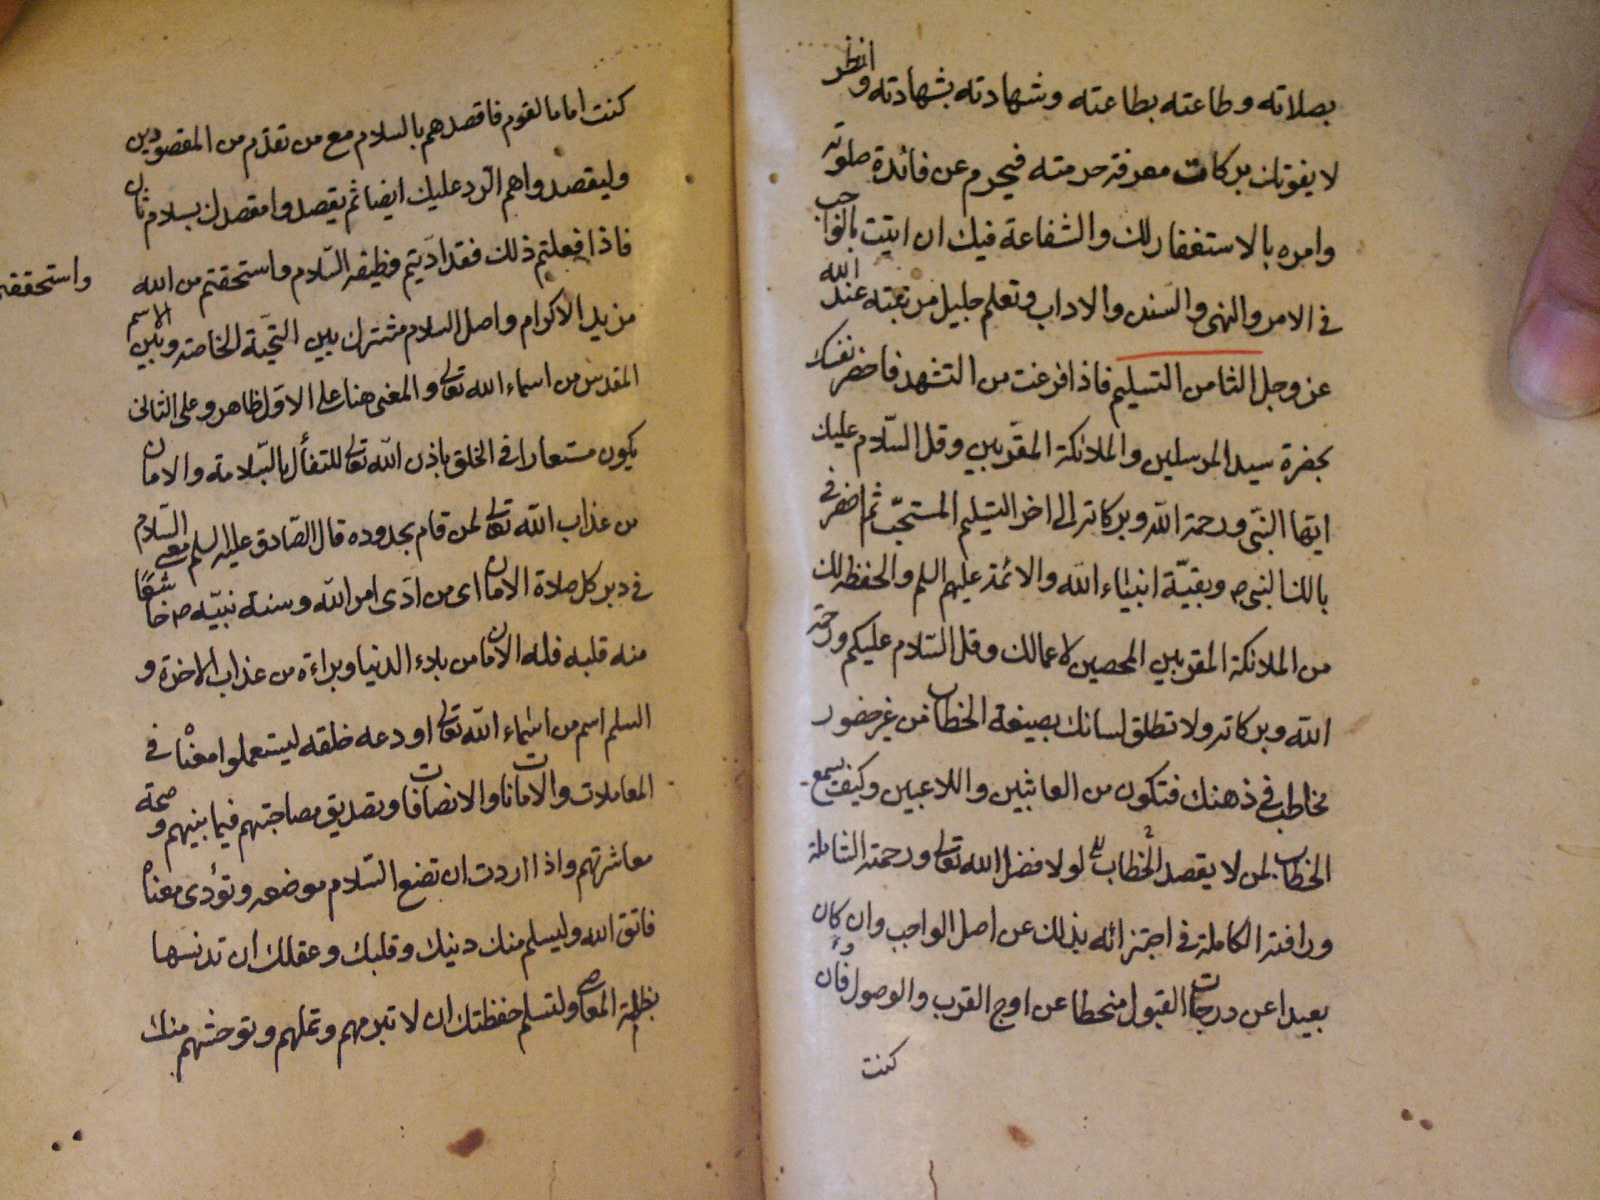 بصلاته وطاعته بطاعته وشهادته بشهادته وانظر
لا يفوتك بركات معرفة حرمته فيحرم عن فائدة صلوته
وامره بالاستغفار لك والشفاعة فيك ان اتيت بالواجب
في الامر والنهى والسنن والاداب وتعلم جليل مرتبته عند الله
عز وجل الثامن التسليم فاذا فرغت من التشهد فاحضر نفسك
بحضرة سيد المرسلين والملائكة المقربين وقل السّلام عليك
ايها النبّى ورحمة الله وبركاته الى اخر التسليم المستحبّ ثم احضر في
بالك النبى ص وبقيّة انبياء الله والائمة عليهم السلم والحفظة لك
من الملائكة المقربين المحصين لاعمالك وقل السّلام عليكم ورحمة
الله وبركاته ولا تطلق لسانك بصيغة الخطاب من غير حضور
مخاطب في ذهنك فتكون من العابثين واللاعبين وكيف يسمع
الخطاب لمن لا يقصد الخطاب لولا فضل الله تعالى ورحمته الشاملة
ورافته الكاملة في اجتزائه بذلك عن اصل الواجب وان كان
بعيدا عن درجات القبول منحطا عن اوج القرب والوصول وان
كنت
كنت اماما لقوم فاقصدهم بالسلام مع من تقدّم من المقصودين
وليقصدوا هم الرّد عليك ايضا ثم يقصدوا مقصدك بسلام ثان
فاذا فعلتم ذلك فقد ادّيتم وظيفة السّلام واستحقتم من الله
واستحققتم
مزيد الاكرام واصل السلام مشترك بين التحيّة الخاصة وبين الاسم
المقدس من اسماء الله تعالى والمعنى هنا على الاول ظاهر وعلى الثانى
يكون مستعارا في الخلق باذن الله تعالى للتفأل بالسّلامة والامان
من عذاب الله تعالى لمن قام بحدوده قال الصّادق عليه السلم معنى السّلام
في دبر كل صلاة الامان اى من ادّى امر الله وسنة نبيّه ص خاشعًا
منه قلبه فله الامان من بلاء الدنيا وبراءة من عذاب الاخرة و
السلم اسم من اسماء الله تعالى اودعه خلقه ليستعملوا معناه في
المعاملات والامانات والانصافات وتصديق مصاحبتهم فيما بينهم وصحة
معاشرتهم واذا اردت ان تضع السّلام موضعه وتؤدى معناه
فاتق الله وليسلم منك دينك وقلبك وعقلك ان تدنسها
بظلمة المعاصى ولتسلم حفظتك ان لا تبرمهم وتملهم وتوحشهم منك